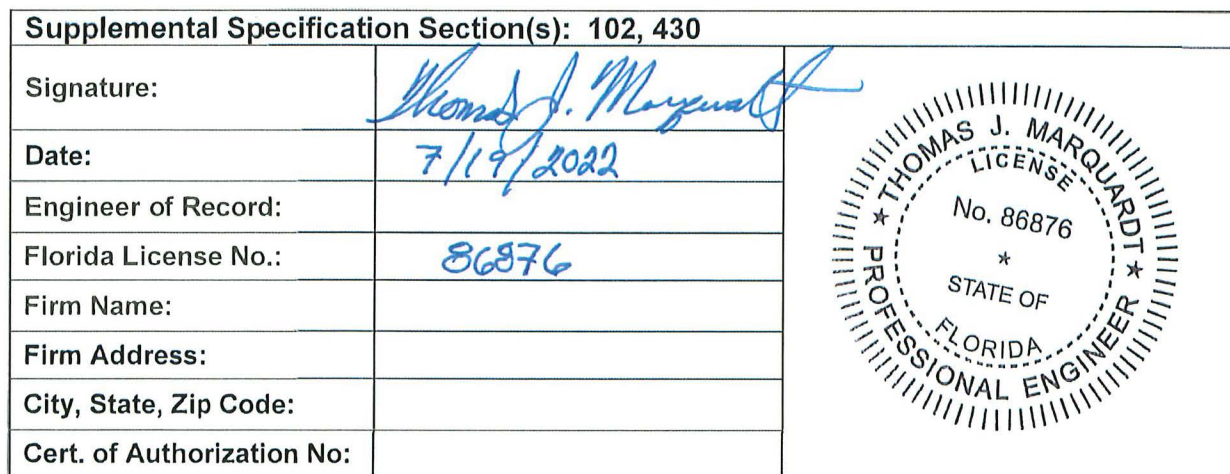 Supplemental Specification Section(s): 102, 430
Signature: Thomas J. Marquardt
Date: 7/19/2022
Engineer of Record:
Florida License No.: 86876
Firm Name:
Firm Address:
City, State, Zip Code:
Cert. of Authorization No:
THOMAS J. MARQUARDT
LICENSE
No. 86876
STATE OF
FLORIDA
PROFESSIONAL ENGINEER